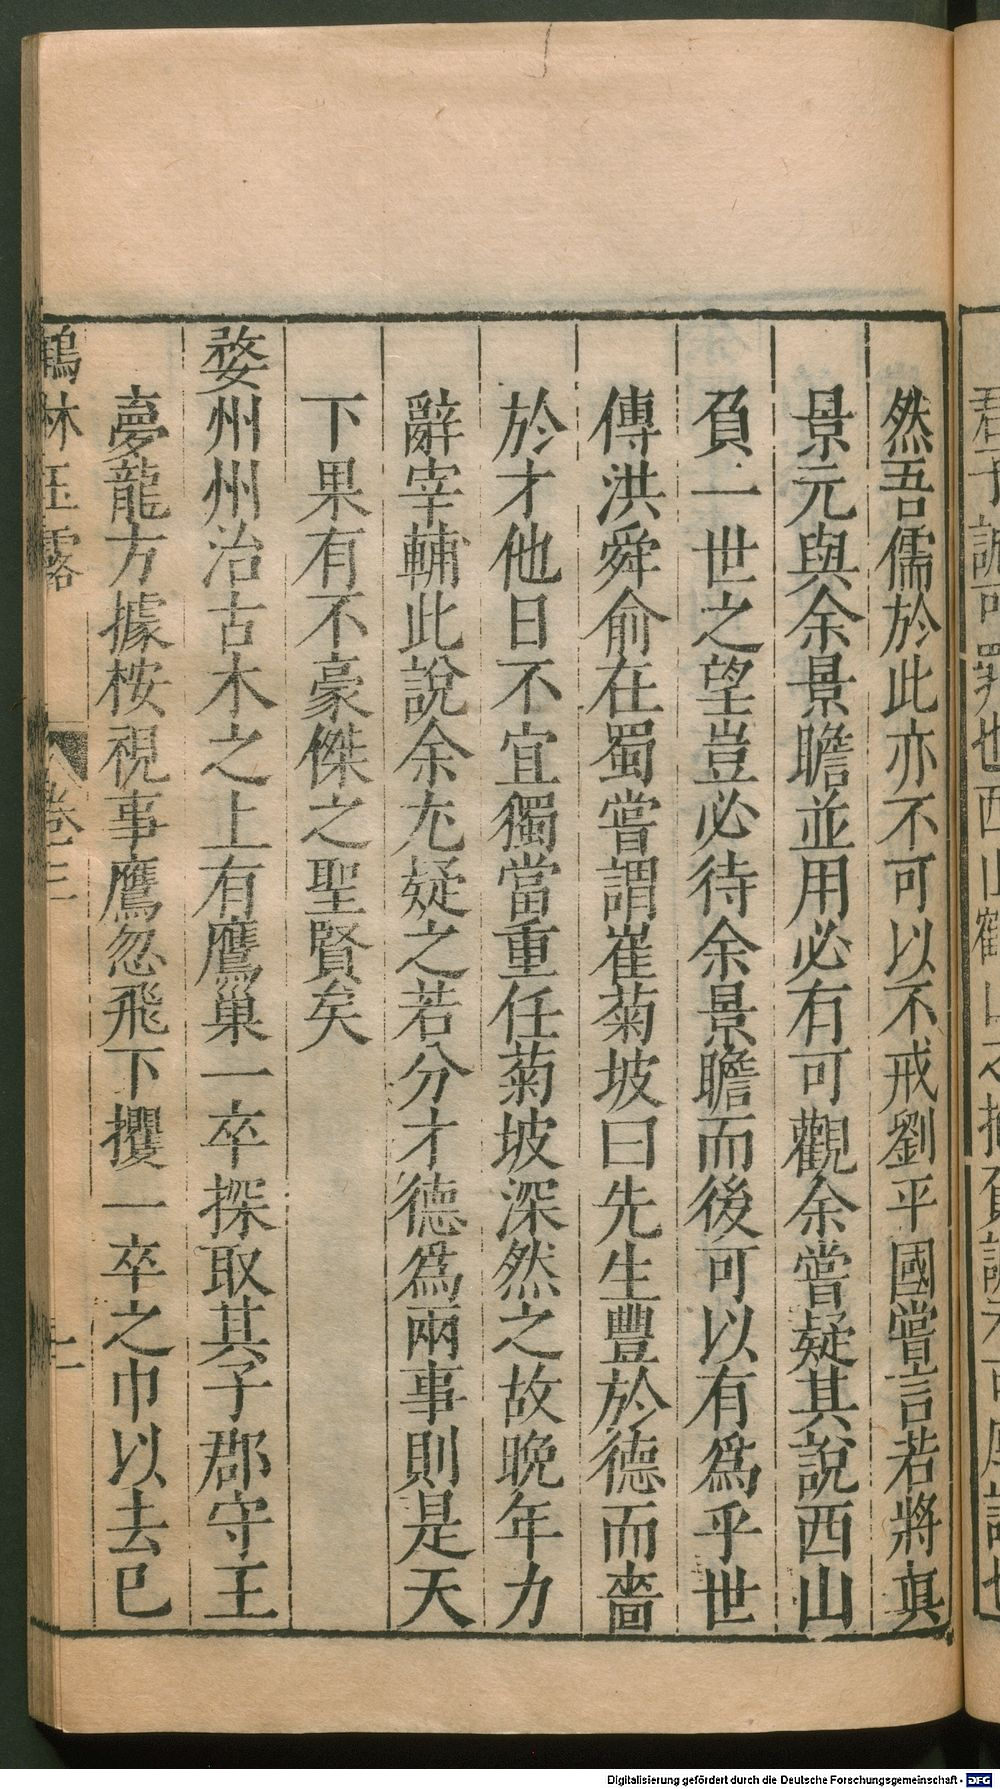 然吾儒於此亦不可以不戒劉平國嘗言若將真
景元與余景瞻並用必有可觀余嘗疑其說西山
負一世之望豈必待余景瞻而後可以有爲乎世
傳洪舜俞在蜀嘗謂崔菊坡曰先生豐於德而嗇
於才他日不宜獨當重任菊坡深然之故晚年力
辭宰輔此說余尢疑之若分才德爲兩事則是天
下果有不豪傑之聖賢矣
婺州州治古木之上有鷹巢一卒探取其子郡守王
夢龍方據桉視事鷹忽飛下攫一卒之巾以去已
鶴林玉露
卷三
Digitalisierung gefördert durch die Deutsche Forschungsgemeinschaft - DFG